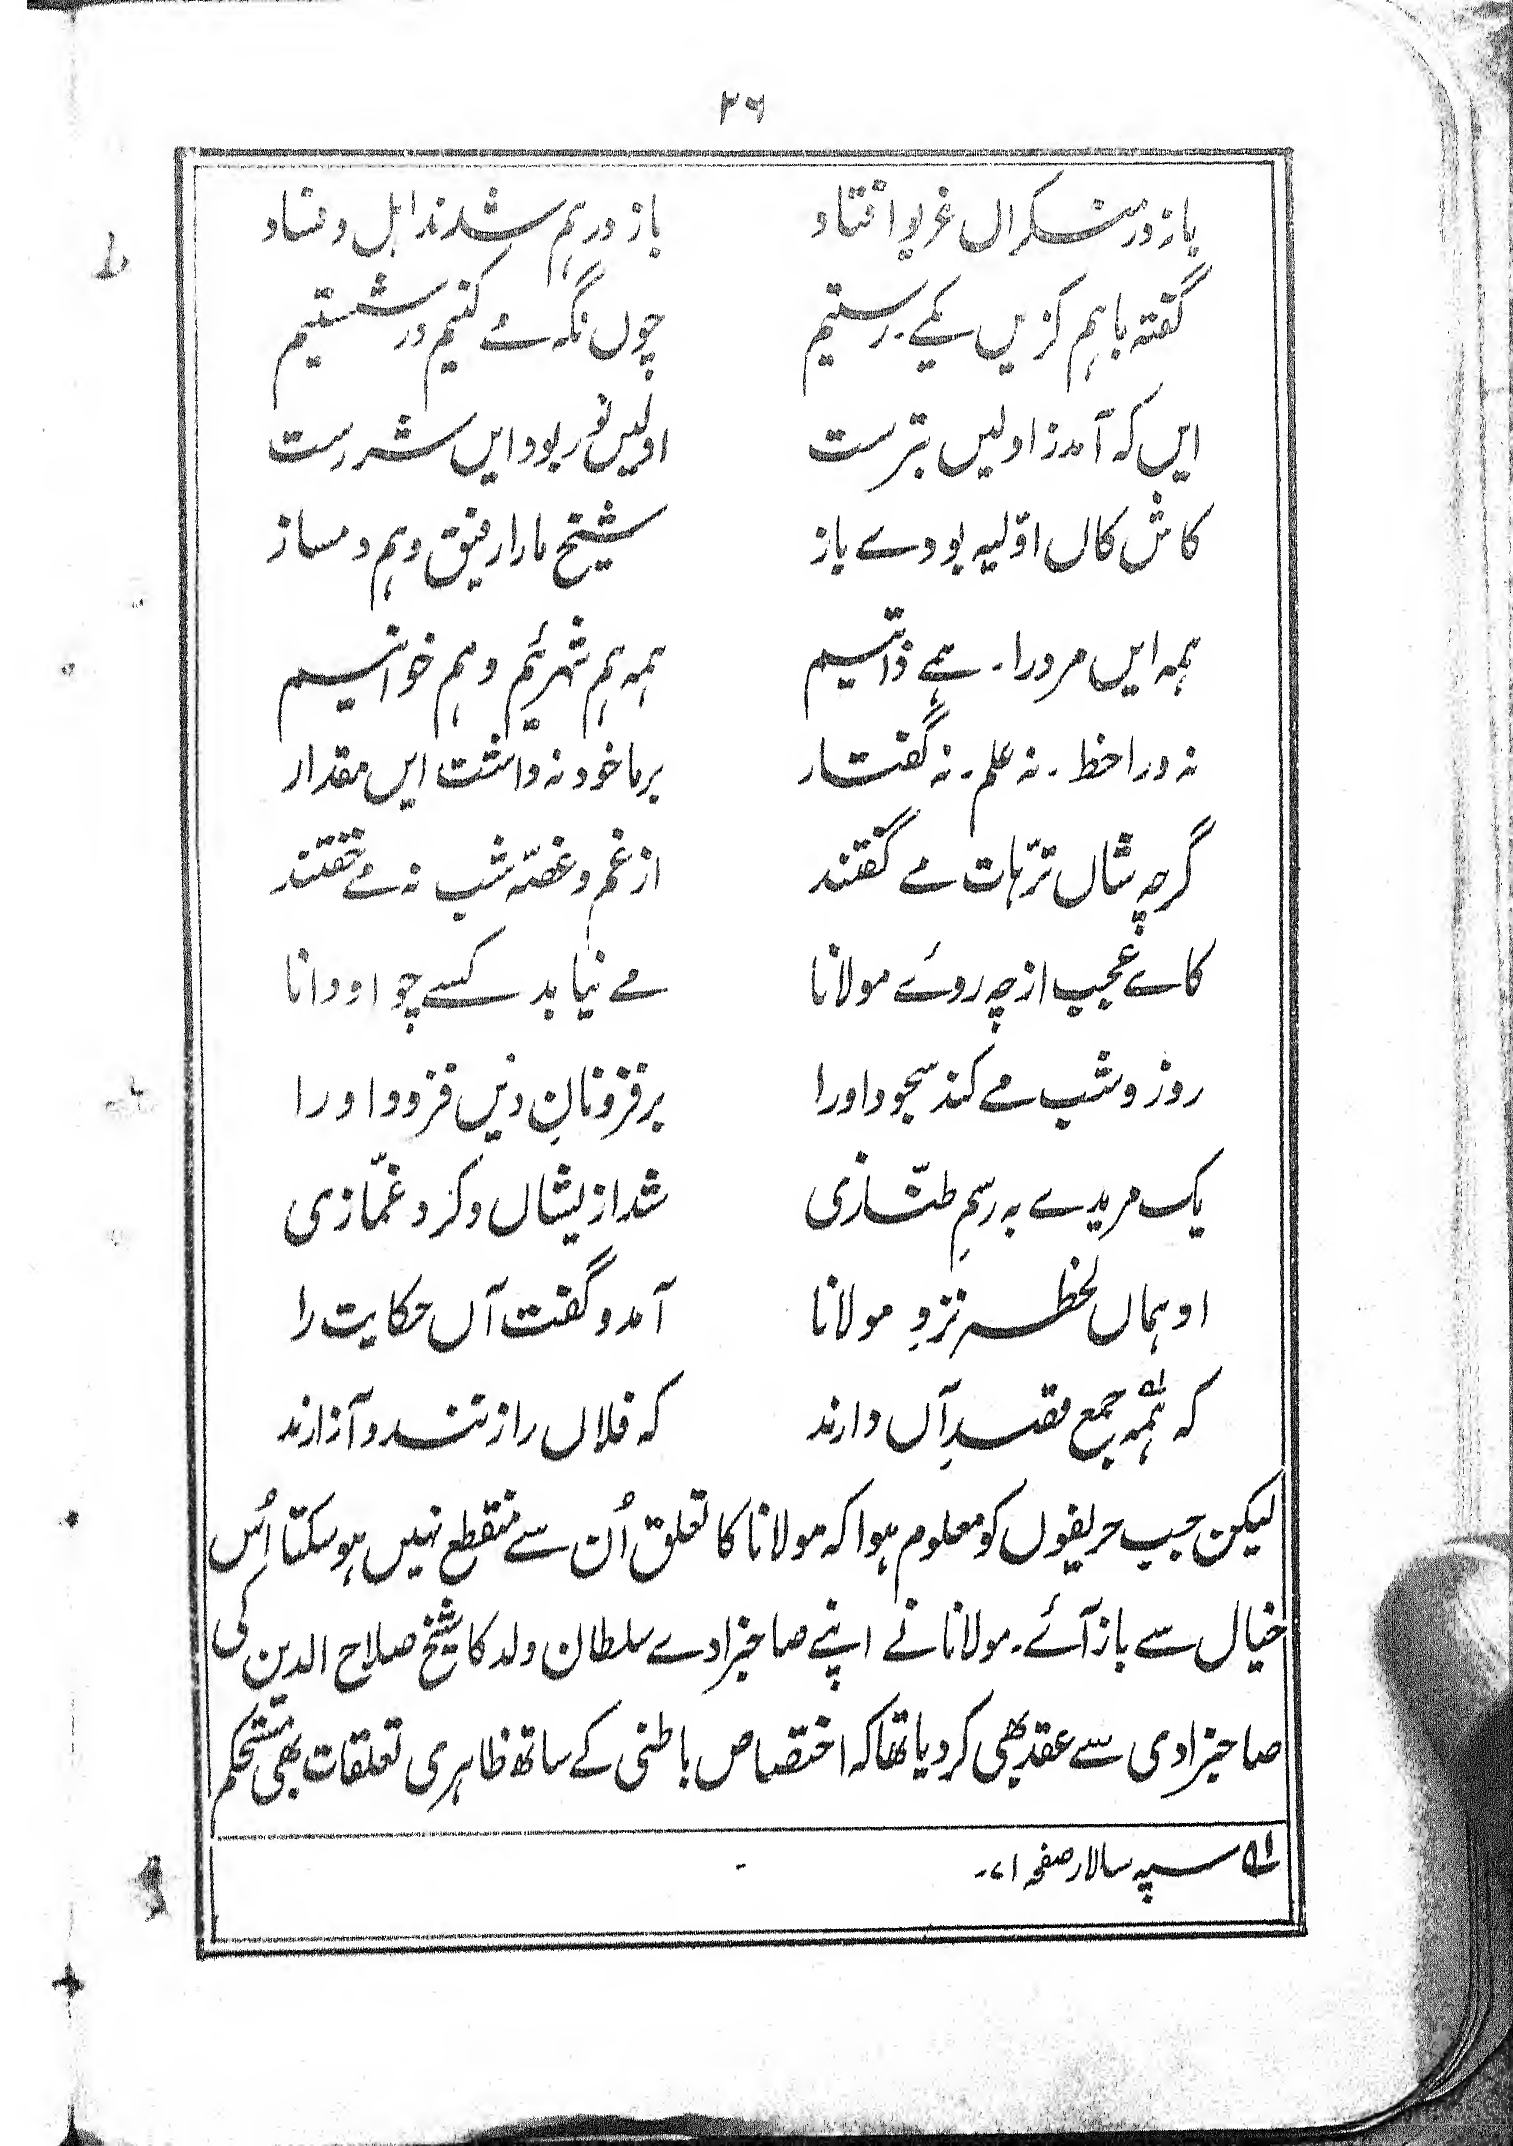 ۲۶
باز در منکراں غریو افتاد باز در ہم شدند اہل فساد
گفتہ باہم کزیں یکے۔ رستیم چوں نگہ مے کنیم در شستیم
ایں کہ آمد ز اولیں بترست اولیں نور بود ایں شررست
کاش کاں اوّلیہ بودے باز شیخ ما را رفیق و ہم دمساز
ہمہ ایں مرد را۔ ہمے دانیم ہمہ ہم شہریئم و ہم خوانیم
نہ ورا خط۔ نہ علم۔ نہ گفتار بر ما خود نہ داشت ایں مقدار
گرچہ شاں ترّہات مے گفتند از غم و غصّہ شب نہ مے خفتند
کاے عجب از چہ روئے مولانا مے نیابد کسے چو او دانا
روز و شب مے کند سجود او را بر فزونانِ دیں فزود او را
یک مریدے بہ رسمِ طنّازی شد ازیشاں و کرد غمّازی
او ہماں لحظہ نزدِ مولانا آمد و گفت آں حکایت را
کہ ہمہ جمع قصدِ آں دارند کہ فلاں را زنند و آزارند
لیکن جب حریفوں کو معلوم ہوا کہ مولانا کا تعلق اُن سے منقطع نہیں ہو سکتا اُس
خیال سے باز آئے۔ مولانا نے اپنے صاحبزادے سلطان ولد کا شیخ صلاح الدین کی
صاحبزادی سے عقد بھی کر دیا تھا کہ اختصاص باطنی کے ساتھ ظاہری تعلقات بھی مستحکم
لہ سپہ سالار صفحہ ۷۱۔